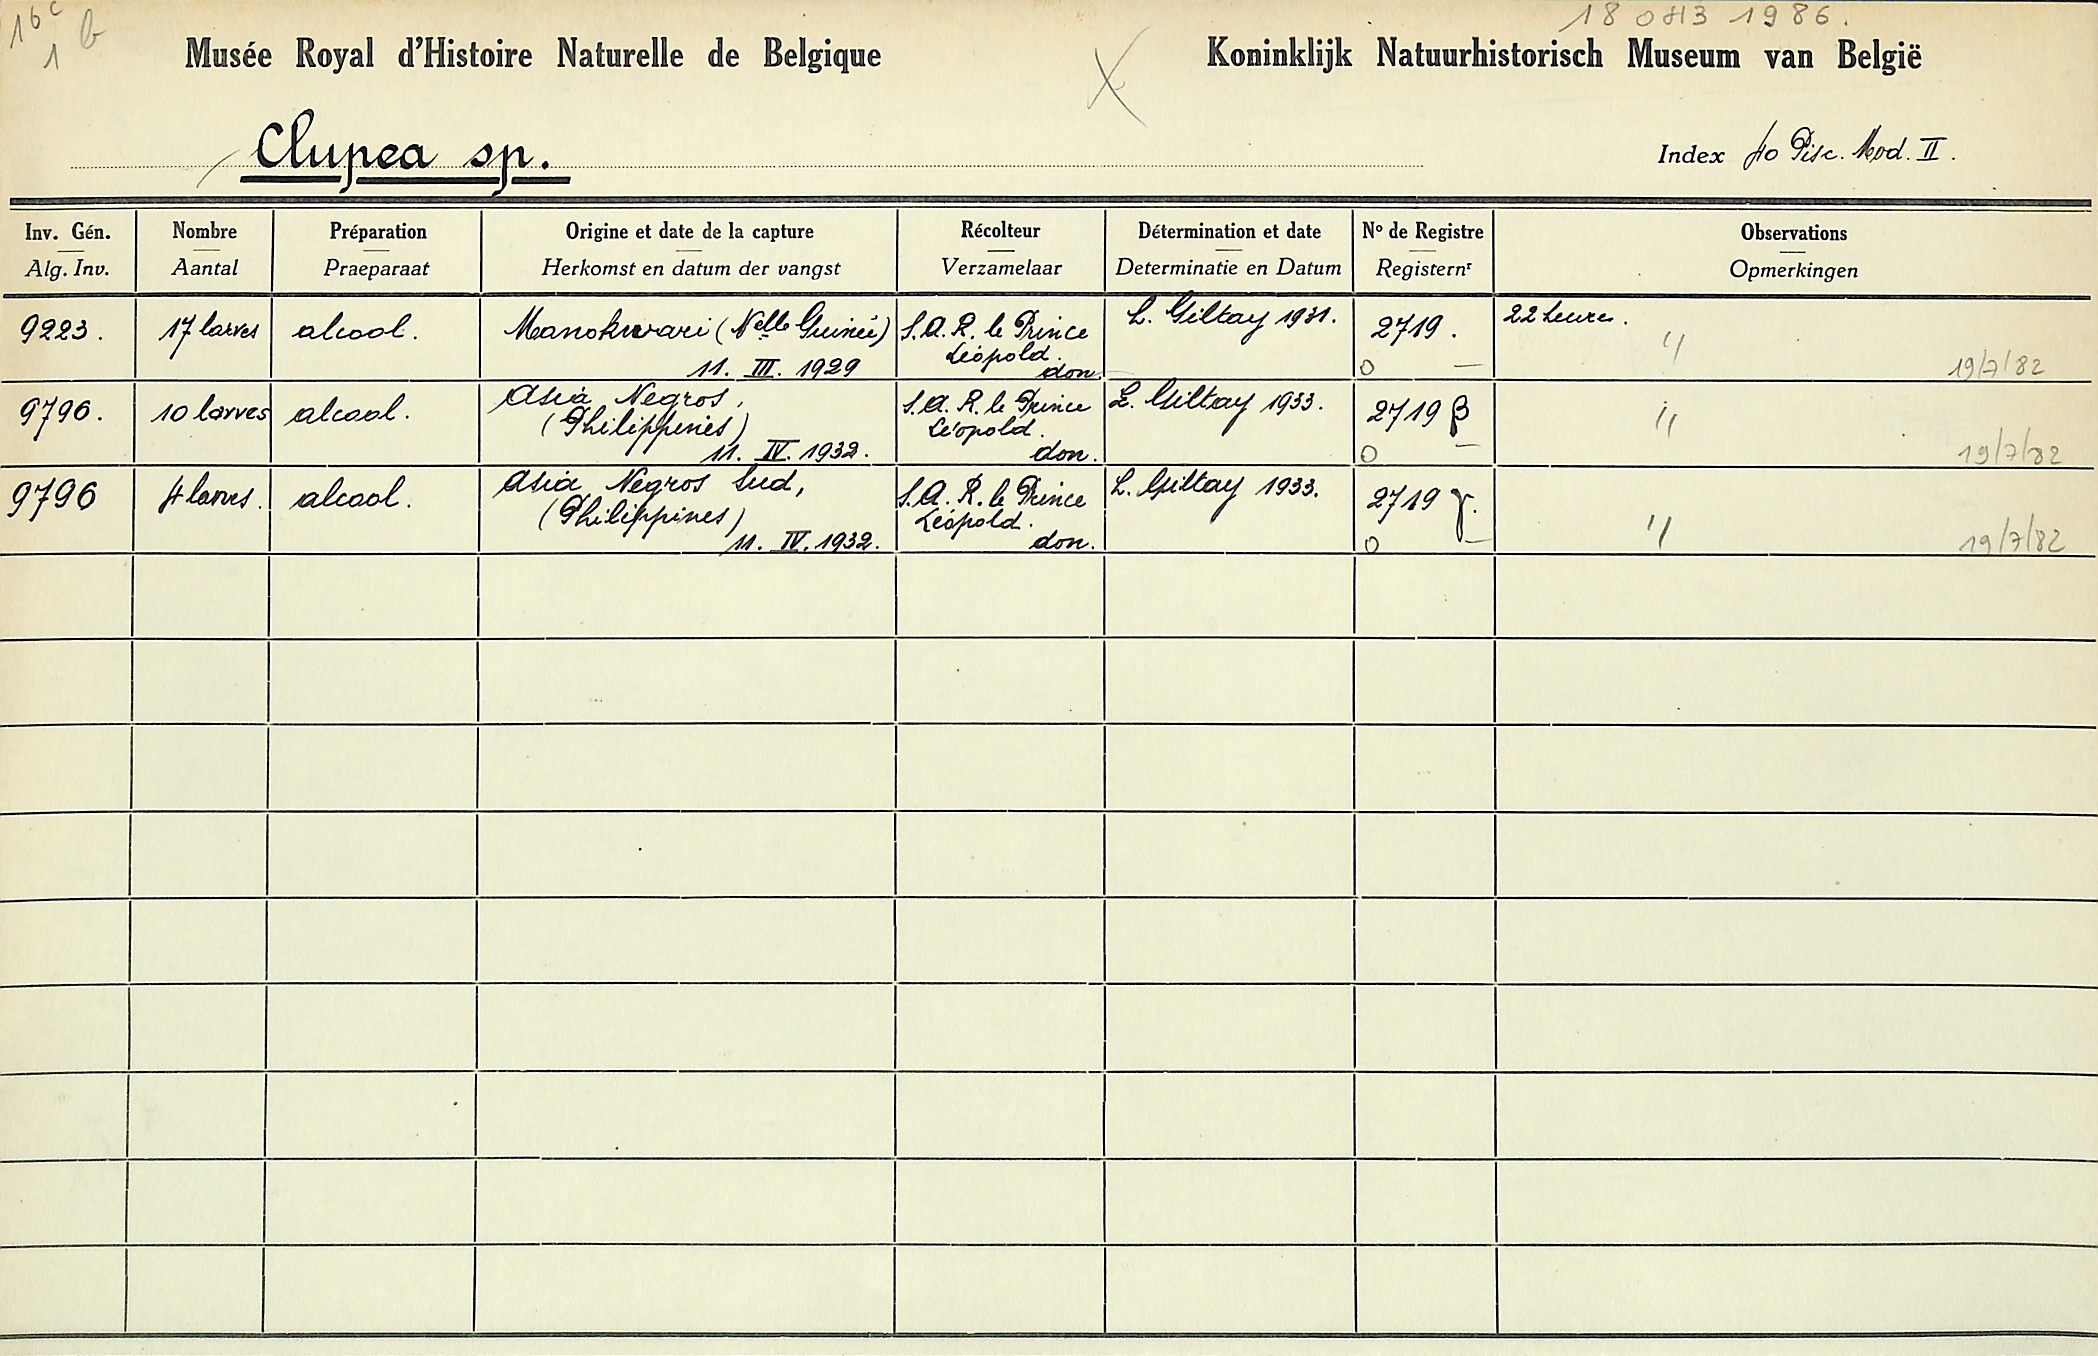 16c b
1
18 0413 1986.
Musée Royal d'Histoire Naturelle de Belgique
Koninklijk Natuurhistorisch Museum van België
Clupea sp.
Index 40 Pisc. Mod. II.
Inv. Gén. Nombre Préparation Origine et date de la capture Récolteur Détermination et date Nº de Registre Observations
Alg. Inv. Aantal Praeparaat Herkomst en datum der vangst Verzamelaar Determinatie en Datum Registernr Opmerkingen
9223. 17 larves alcool. Manokwari (Nelle Guinée) S.A.R. le Prince L. Giltay 1931. 2719. 22 heures. "
11. III. 1929 Léopold. don. 0 — 19/7/82
9796. 10 larves alcool. Asia, Negros, S.A.R. le Prince L. Giltay 1933. 2719 β "
(Philippines) Léopold.
11. IV. 1932. don. 0 — 19/7/82
9796 4 larves. alcool. Asia Negros Sud, S.A.R. le Prince L. Giltay 1933. 2719 γ.
(Philippines) Léopold. "
11. IV. 1932. don. 0 — 19/7/82